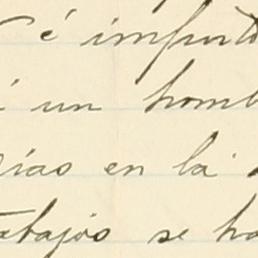 é importo
un homb
ías en la
abajos se ha